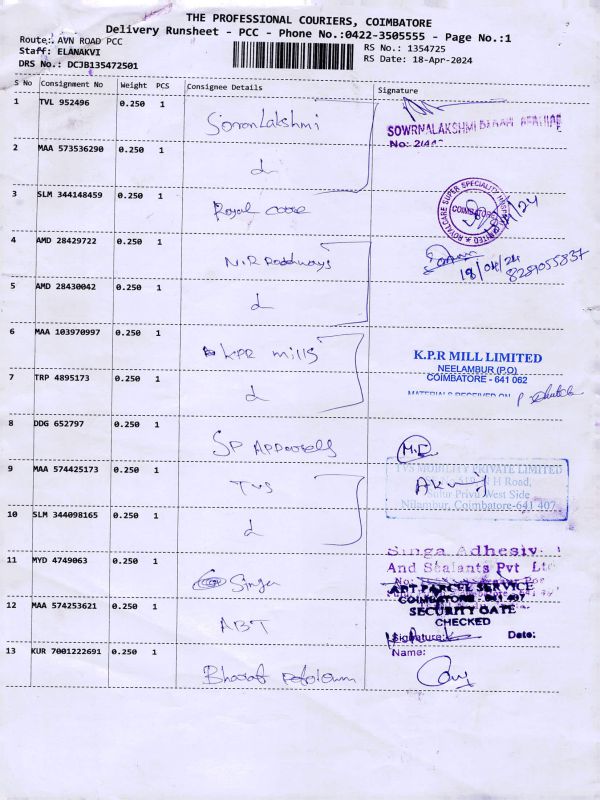 THE PROFESSIONAL COURIERS, COIMBATORE
Delivery Runsheet - PCC - Phone No.:0422-3505555 - Page No.:1
Route: AVN ROAD PCC
RS No.: 1354725
Staff: ELANAKVI
RS Date: 18-Apr-2024
DRS No.: DCJB135472501
S No Consignment No Weight PCS Consignee Details Signature
1 TVL 952496 0.250 1 SowrnLakshmi
SOWRNALAKSHMI
No:
2 MAA 573536290 0.250 1
3 SLM 344148459 0.250 1 Royal care
ROYALCARE SUPER SPECIALITY
COIMBATORE
4 AMD 28429722 0.250 1 N.R Roadways
18/04/24
8289055837
5 AMD 28430042 0.250 1
6 MAA 103970997 0.250 1 KPR mills
K.P.R MILL LIMITED
NEELAMBUR (P.O)
COIMBATORE - 641 062
MATERIALS RECEIVED ON
7 TRP 4895173 0.250 1
8 DDG 652797 0.250 1 SP Apparels
9 MAA 574425173 0.250 1 TVS
TVS MOBILITY PRIVATE LIMITED
H Road,
West Side
Nilambur, Coimbatore-641 407
10 SLM 344098165 0.250 1
11 MYD 4749063 0.250 1 Singa
Singa Adhesiv
And Sealants Pvt Lt
No:
12 MAA 574253621 0.250 1 ABT
ABT PARCEL SERVICE
COIMBATORE - 641 407
SECURITY GATE
CHECKED
Signature: Date:
Name:
13 KUR 7001222691 0.250 1 Bharat Petroleum